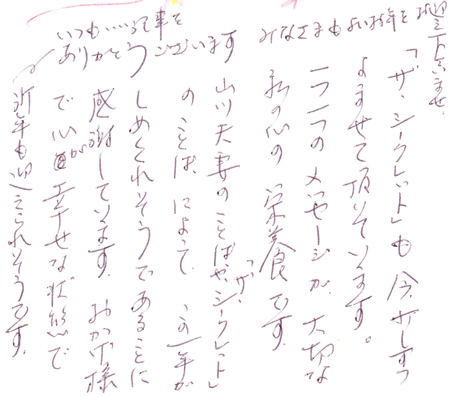 「ザ・シークレット」も今、少しずつ
よませて頂いています。
一つ一つのメッセージが、大切な
私の心の栄養食です。
山川夫妻のことばや、「ザ・シークレット」
のことばによって、この一年が
しめくくれそうであることに
感謝しています。おかげ様
で心が幸せな状態で
新年も迎えられそうです。
いつも……る事を
ありがとうございます
みなさまもよいお年をお迎え下さいませ。